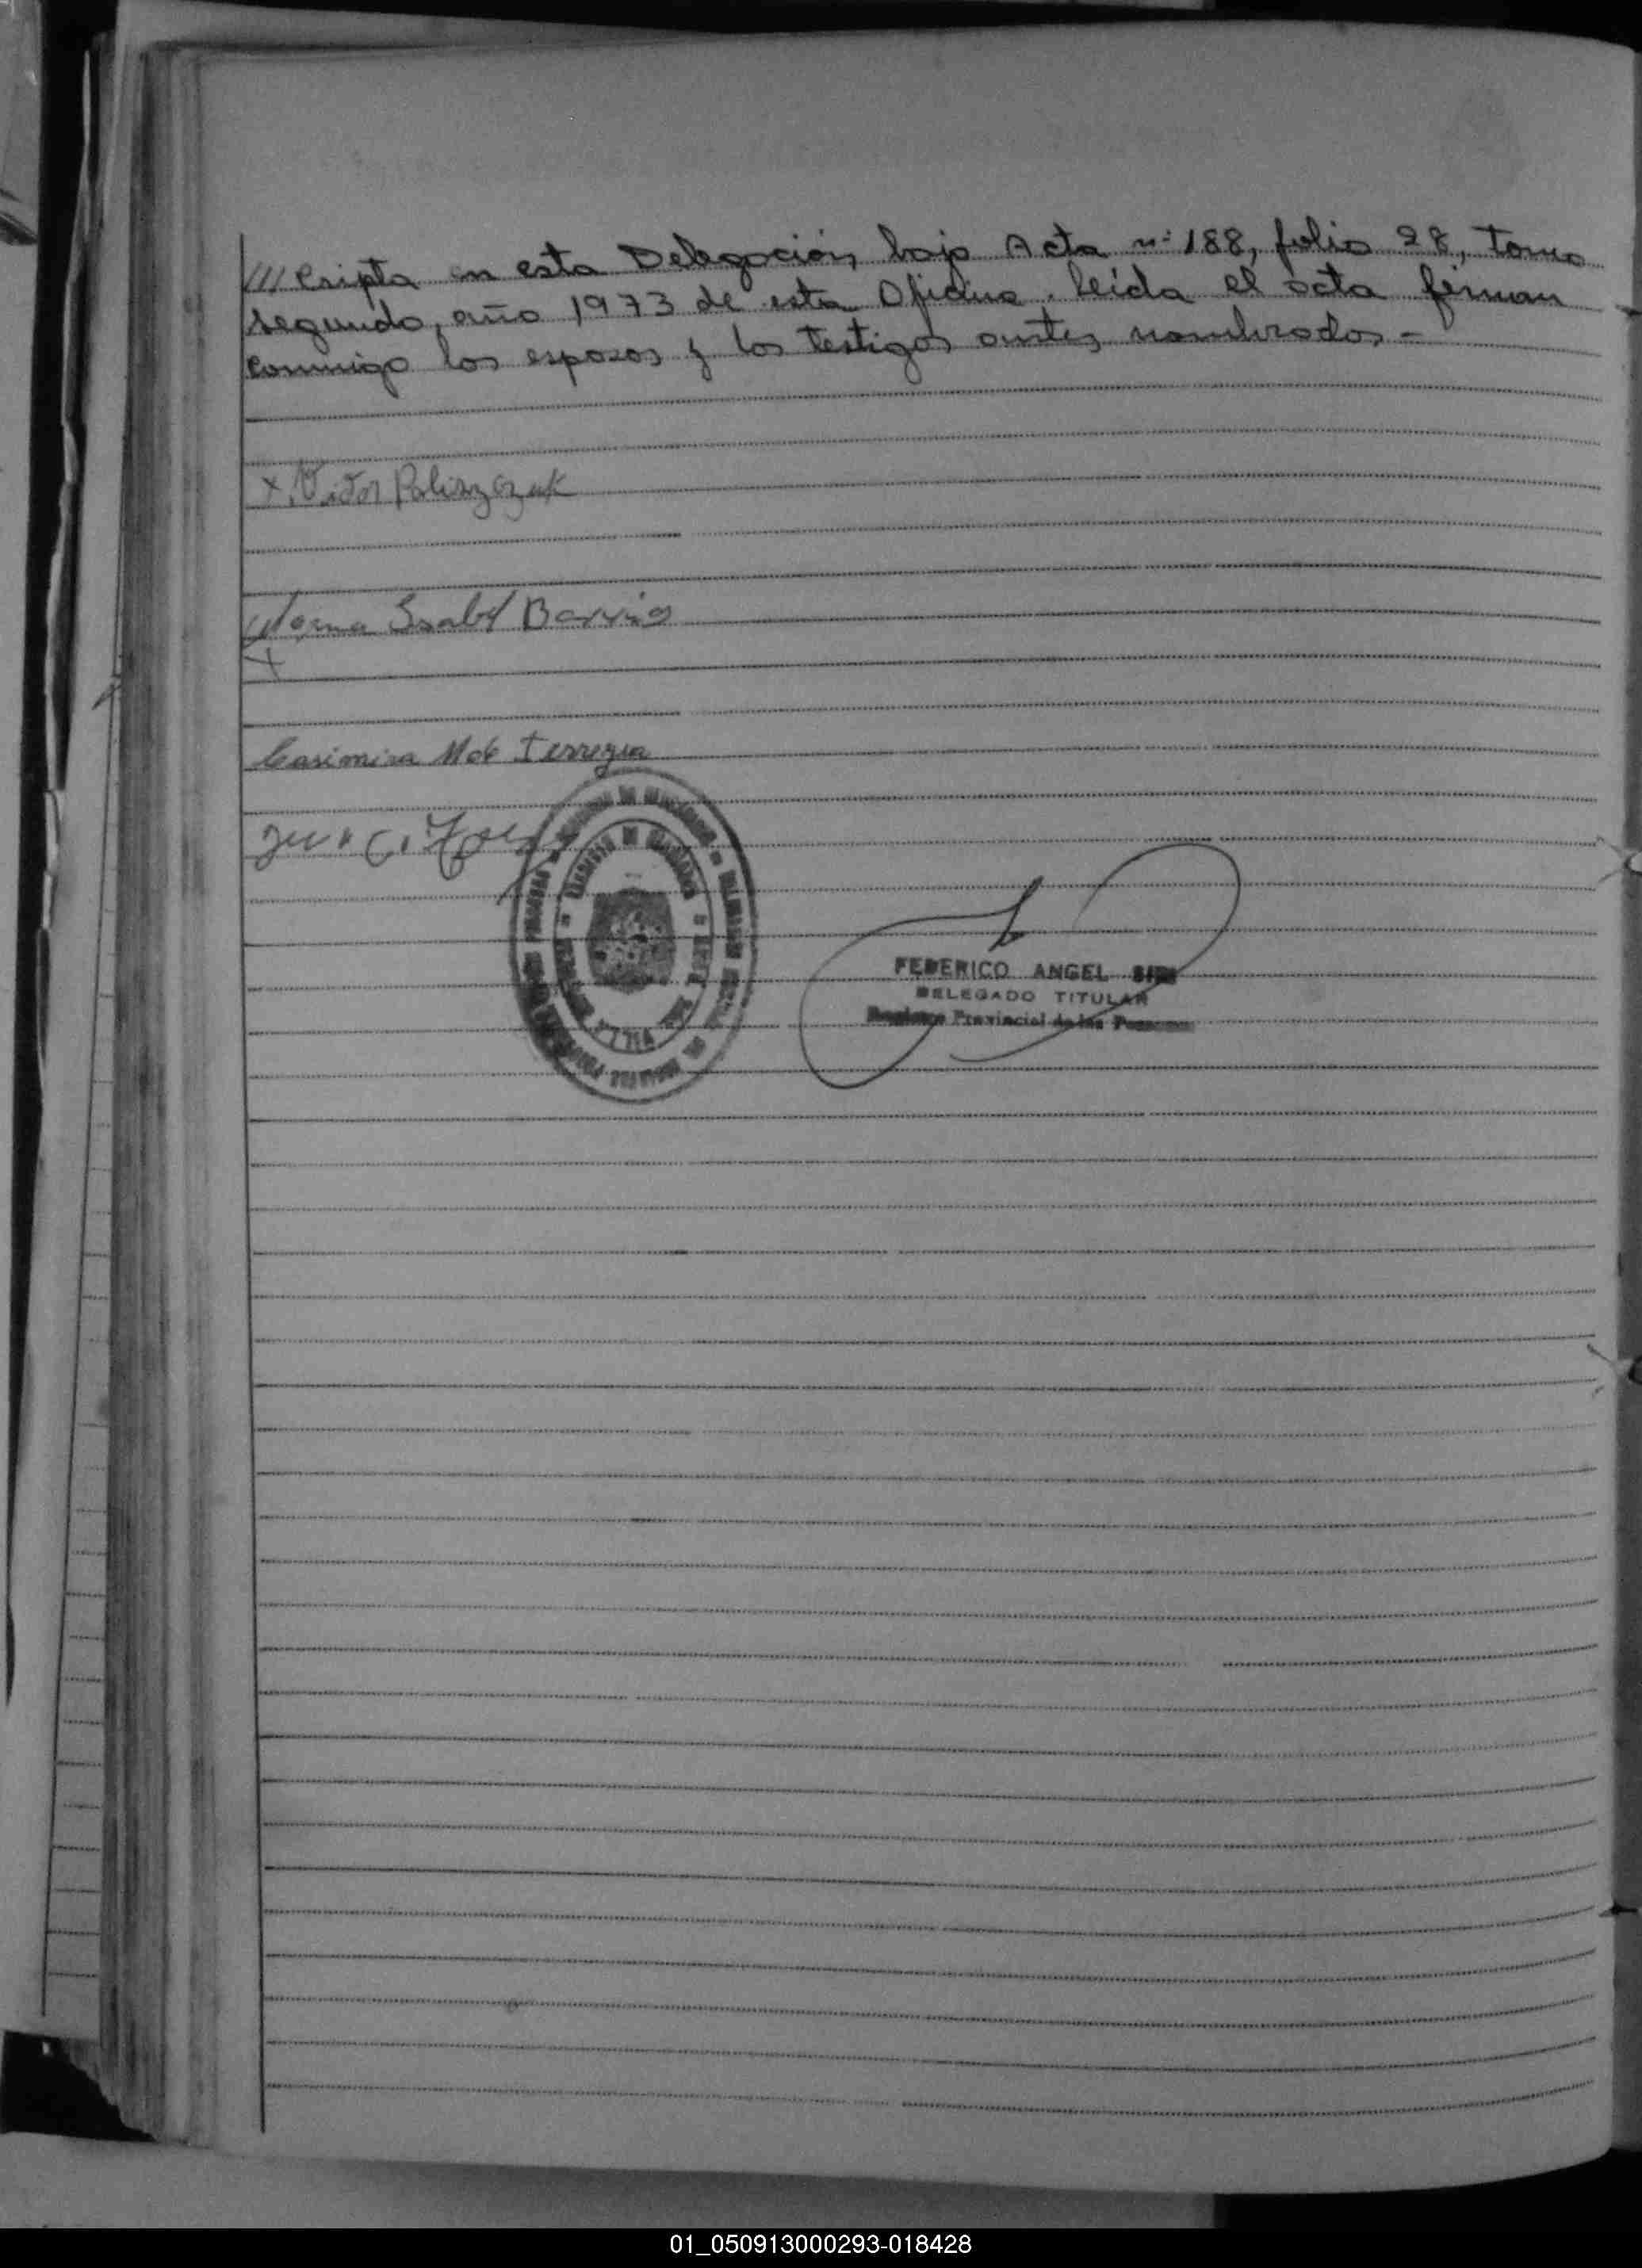 /// cripta en esta Delegación, bajo Acta nº 188, folio 28, Tomo
segundo, año 1973 de esta Oficina. leída el acta firman
conmigo los esposos y los Testigos antes nombrados -
x Victor Poliszczuk
Norma Isabel Barrios
x
Casimira M de
FEDERICO ANGEL
DELEGADO TITULAR
Registro Provincial de las Personas
01_050913000293-018428